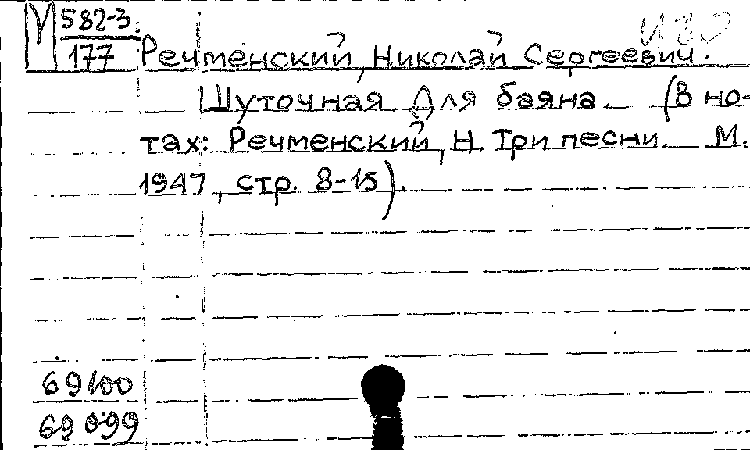 У 582-3
177
Речменский, Николай Сергеевич.
Шуточная Для баяна. (В но-
тах: Речменский, Н. Три песни. М.
1947, стр. 8-15).
69100
69099